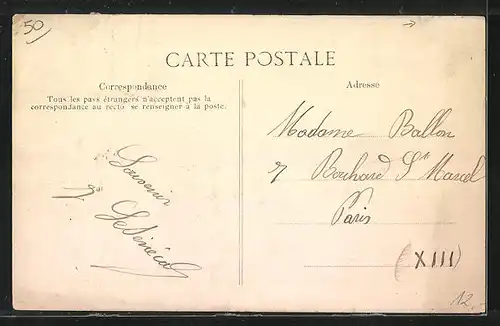 50
CARTE POSTALE
Correspondance
Tous les pays étrangers n'acceptent pas la
correspondance au recto se renseigner à la poste.
Souvenir
Adresse
Madame Ballon
7 St Marcel
Paris
(XIII)
12